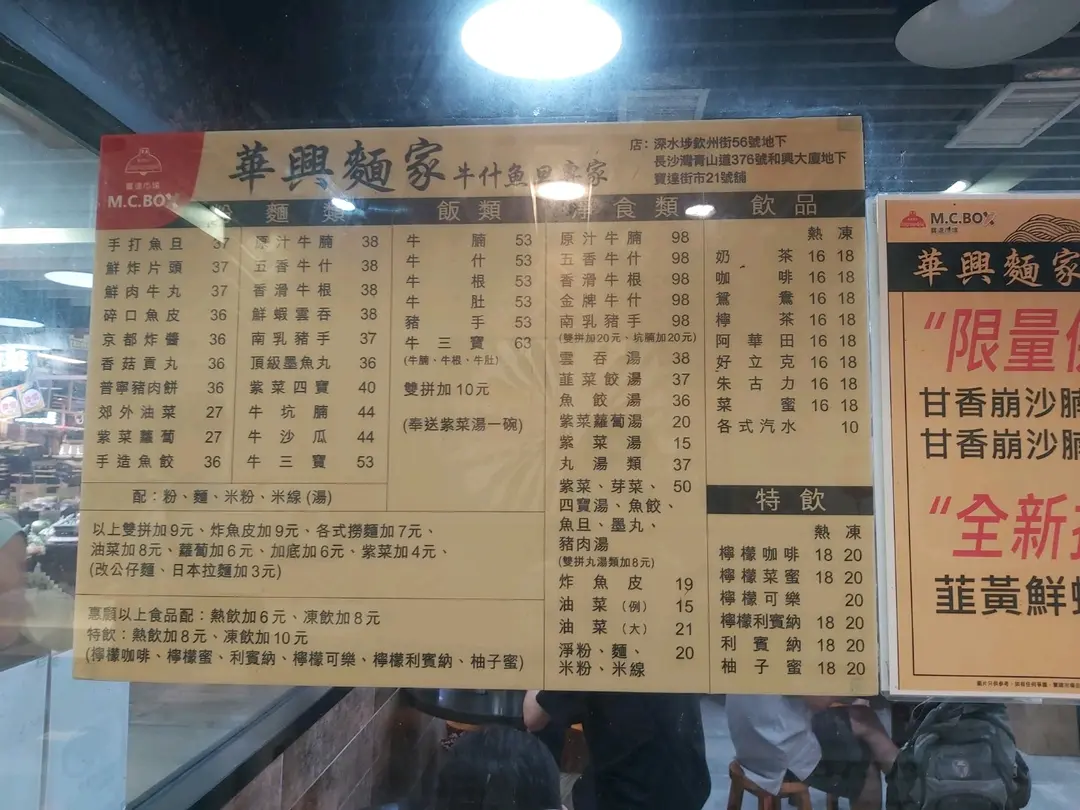 寶達市場
M.C.BOX
華興麵家 牛什魚旦專家
店：深水埗欽州街56號地下
長沙灣青山道376號和興大廈地下
寶達街市21號舖
粉麵類
手打魚旦 37
鮮炸片頭 37
鮮肉牛丸 37
碎口魚皮 36
京都炸醬 36
香菇貢丸 36
普寧豬肉餅 36
郊外油菜 27
紫菜蘿蔔 27
手造魚餃 36
原汁牛腩 38
五香牛什 38
香滑牛根 38
鮮蝦雲吞 38
南乳豬手 37
頂級墨魚丸 36
紫菜四寶 40
牛坑腩 44
牛沙瓜 44
牛三寶 53
配：粉、麵、米粉、米線(湯)
飯類
牛腩 53
牛什 53
牛根 53
牛肚 53
豬手 53
牛三寶 63
(牛腩、牛根、牛肚)
雙拼加10元
(奉送紫菜湯一碗)
以上雙拼加9元、炸魚皮加9元、各式撈麵加7元、
油菜加8元、蘿蔔加6元、加底加6元、紫菜加4元、
(改公仔麵、日本拉麵加3元)
惠顧以上食品配：熱飲加6元、凍飲加8元
特飲：熱飲加8元、凍飲加10元
(檸檬咖啡、檸檬蜜、利賓納、檸檬可樂、檸檬利賓納、柚子蜜)
食類
原汁牛腩 98
五香牛什 98
香滑牛根 98
金牌牛什 98
南乳豬手 98
(雙拼加20元、坑腩加20元)
雲吞湯 38
韮菜餃湯 37
魚餃湯 36
紫菜蘿蔔湯 20
紫菜湯 15
丸湯類 37
紫菜、芽菜、 50
四寶湯、魚餃、
魚旦、墨丸、
豬肉湯
(雙拼丸湯類加8元)
炸魚皮 19
油菜(例) 15
油菜(大) 21
淨粉、麵、 20
米粉、米線
飲品
熱 凍
奶茶 16 18
咖啡 16 18
鴛鴦 16 18
檸茶 16 18
阿華田 16 18
好立克 16 18
朱古力 16 18
菜蜜 16 18
各式汽水 10
特飲
熱 凍
檸檬咖啡 18 20
檸檬菜蜜 18 20
檸檬可樂 20
檸檬利賓納 18 20
利賓納 18 20
柚子蜜 18 20
M.C.BOX
寶達市場
華興麵家
“限量
甘香崩沙腩
甘香崩沙腩
“全新
韮黃鮮